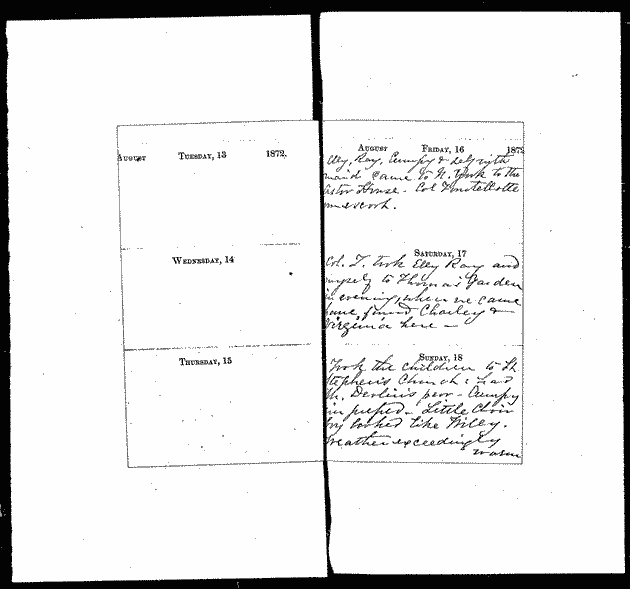 August Tuesday, 13 1872.
Wednesday, 14
Thursday, 15
August Friday, 16 1872
Elly, Ray, Cumpy & self with
maid came to N. York to the
Astor House - Col
Saturday, 17
Col. T. took Elly Ray and
myself to Thomas Garden
in evening, when we came
home, found Charley &
Virginia here -
Sunday, 18
Took the children to St
Stephen's Church: had
Mr. Devlin's pew - Cumpy
in pulpit - Little Choir
boy looked like Willy.
Weather exceedingly
warm